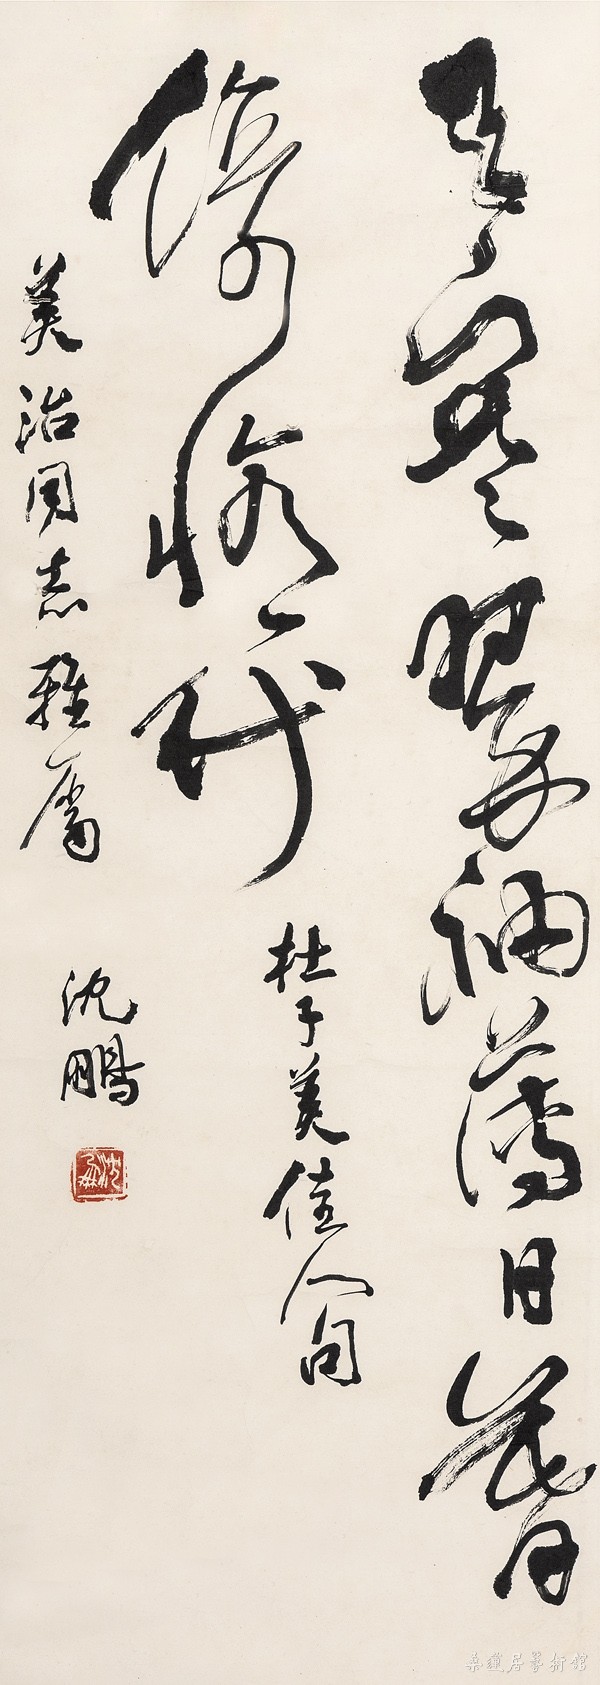 天寒翠袖薄日暮
倚修竹
杜子美佳人句
美治同志雅属
沈鵬
沈鵬
居藝術館